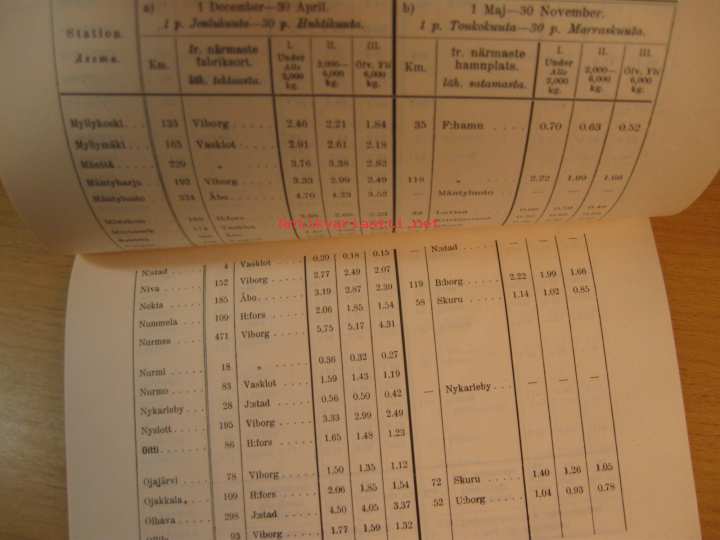 a) 1 December—30 April. b) 1 Maj—30 November.
1 p. Joulukuuta—30 p. Huhtikuuta. 1 p. Toukokuuta—30 p. Marraskuuta.
Station. Asema. Km. fr. närmaste fabriksort. läh. tehtaasta. I. Under Alle 2,000 kg. II. 2,000—6,000 kg. III. Öfv. Yli 6,000 kg. Km. fr. närmaste hamnplats. läh. satamasta. I. Under Alle 2,000 kg. II. 2,000—6,000 kg. III. Öfv. Yli 6,000 kg.
Myllykoski 133 Viborg 2.46 2.21 1.84 35 F:hamn 0.70 0.63 0.52
Myllymäki 163 Vasklot 2.91 2.61 2.18
Mäntä 229 „ 3.76 3.38 2.82
Mäntyharju 193 Viborg 3.33 2.99 2.49 118 „ 2.22 1.99 1.66
Mäntyluoto 334 Åbo 4.70 4.23 3.52 — Mäntyluoto — — —
H:fors Lovisa
Antikvariaatti.net
N:stad 4 Vasklot 0.20 0.18 0.15 — N:stad — — —
Niva 152 Viborg 2.77 2.49 2.07
Nokia 185 Åbo 3.19 2.87 2.39 119 B:borg 2.22 1.99 1.66
Nummela 109 H:fors 2.06 1.85 1.54 58 Skuru 1.14 1.02 0.85
Nurmes 471 Viborg 5.75 5.17 4.31
Nurmi 18 „ 0.36 0.32 0.27
Nurmo 83 Vasklot 1.59 1.43 1.19
Nykarleby 28 J:stad 0.56 0.50 0.42 — Nykarleby — — —
Nyslott 195 Viborg 3.33 2.99 2.49
Oitti 86 H:fors 1.65 1.48 1.23
Ojajärvi 78 Viborg 1.50 1.35 1.12
Ojakkala 109 H:fors 2.06 1.85 1.54 72 Skuru 1.40 1.26 1.05
Olhava 298 J:stad 4.50 4.05 3.37 52 U:borg 1.04 0.93 0.78
93 Viborg 1.77 1.59 1.32